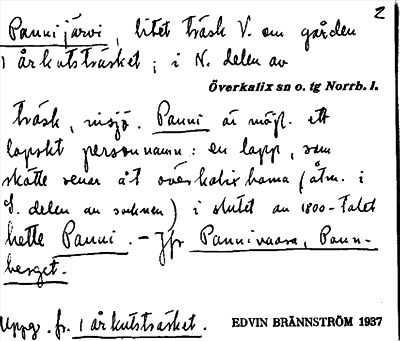 2
Pannijärvi, litet träsk V. om gården
i årkutsträsket; i N. delen av
Överkalix sn o. tg Norrb. l.
träsk, insjö. Panni är möjl. ett
lapskt personnamn: en lapp, som
skötte renar åt överkalixborna (åtm. i
S. delen av socknen) i slutet av 1800-talet
hette Panni. – Jfr Pannivaara, Pann-
berget.
Uppg. fr. i årkutsträsket.
EDVIN BRÄNNSTRÖM 1937